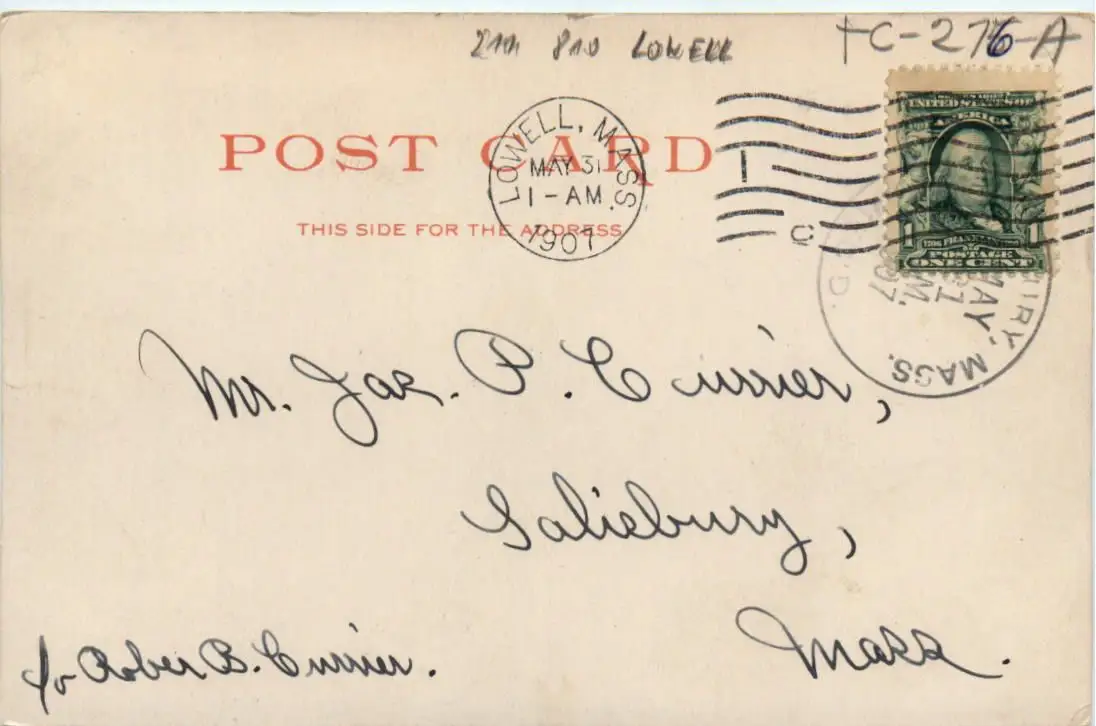 LOWELL
TC-276-A
POST CARD
THIS SIDE FOR THE ADDRESS
LOWELL, MASS.
MAY 31
1-AM
1907
1
C
UNITED STATES OF
AMERICA
1 1
FRANKLIN
POSTAGE
ONE CENT
MAY
MASS.
REC'D.
Mr. Jas. P. Currier,
Salisbury,
Mass.
c/o Rober B. Currier.